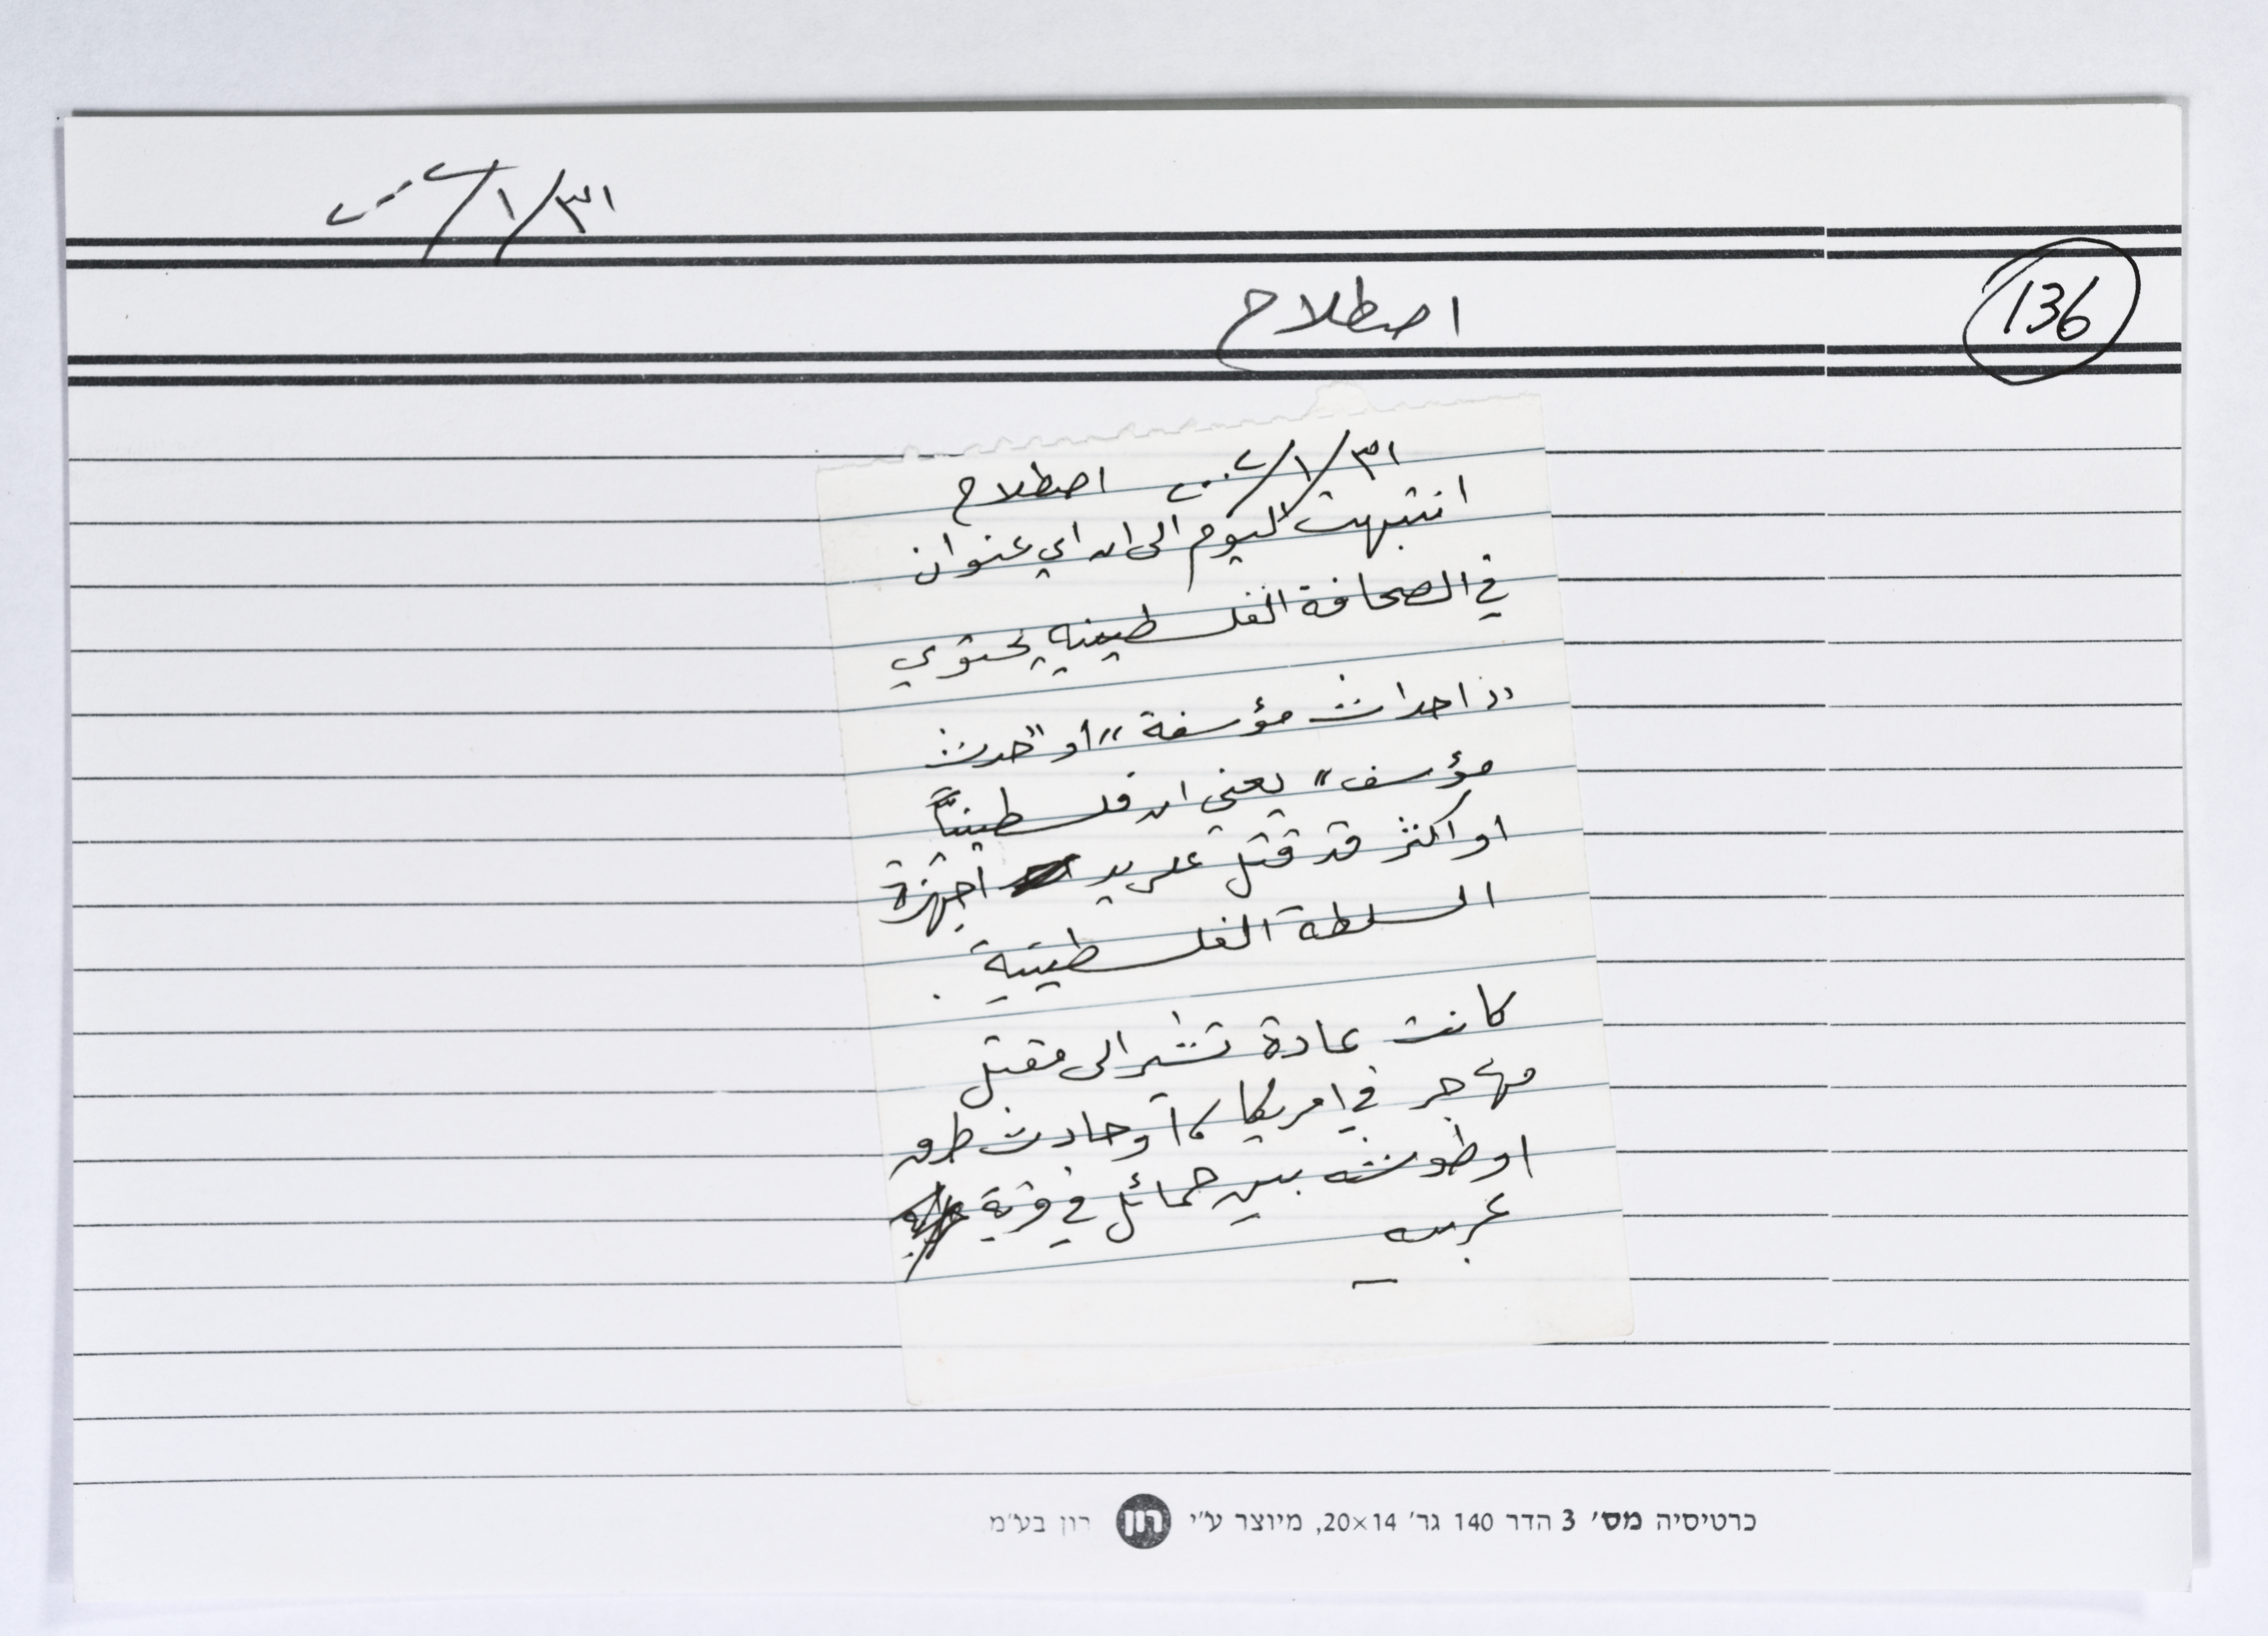 ٣١/١/٢٠٠٢
136
اصطلاح
٣١/١/٢٠٠٢ اصطلاح
انتبهت اليوم الى ان اي عنوان
في الصحافة الفلسطينيه يحتوي
"احداث مؤسفة" او "حدث
مؤسف" يعني ان فلسطينياً
او اكثر قد قتل على يد اجهزة
السلطة الفلسطينية.
كانت عادة تشير الى مقتل
مهاجر في امريكا، أو حادث طرق
او طوشه بين حمائل في قرية
عربيه
כרטיסיה מס׳ 3 הדר 140 גר׳ 20×14, מיוצר ע״י רון רון בע״מ